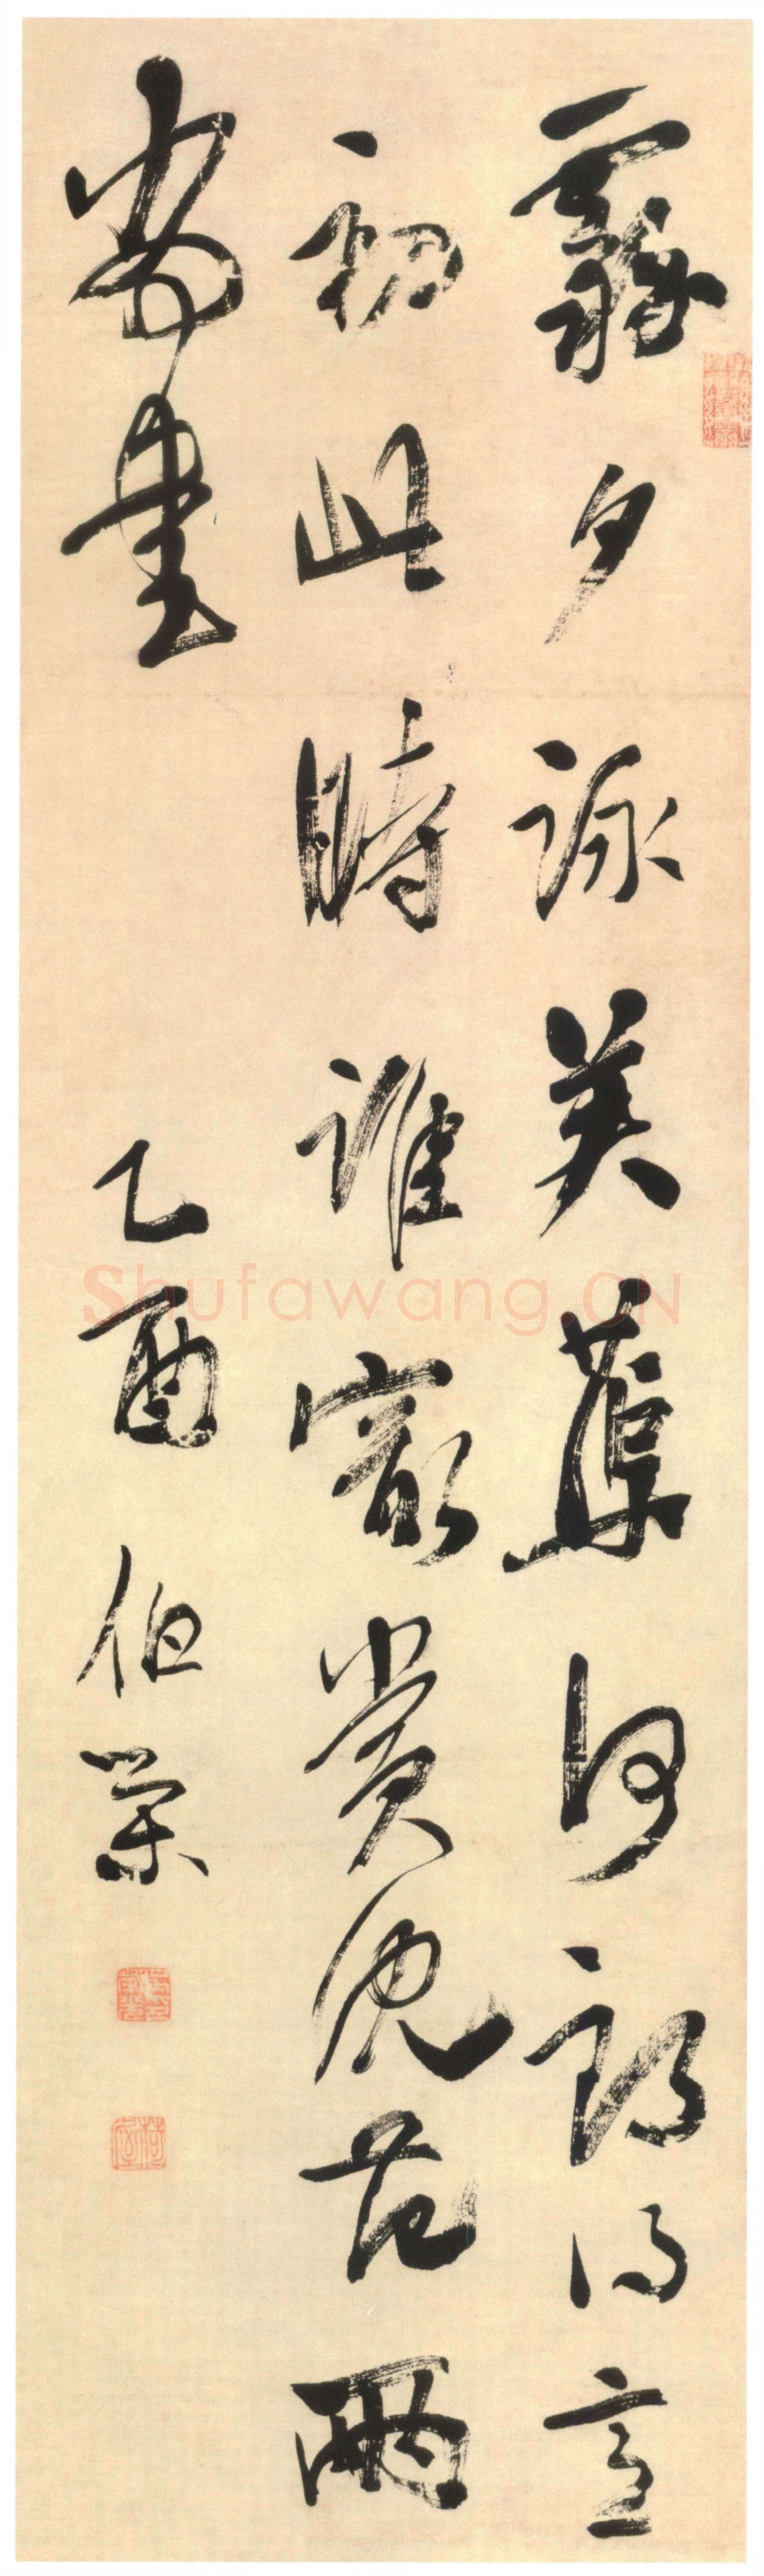 霧夕詠芙蕖何郎得意
初此時誰㝡賞沈范兩
尚書 乙酉 伯榮
Shufawang.CN